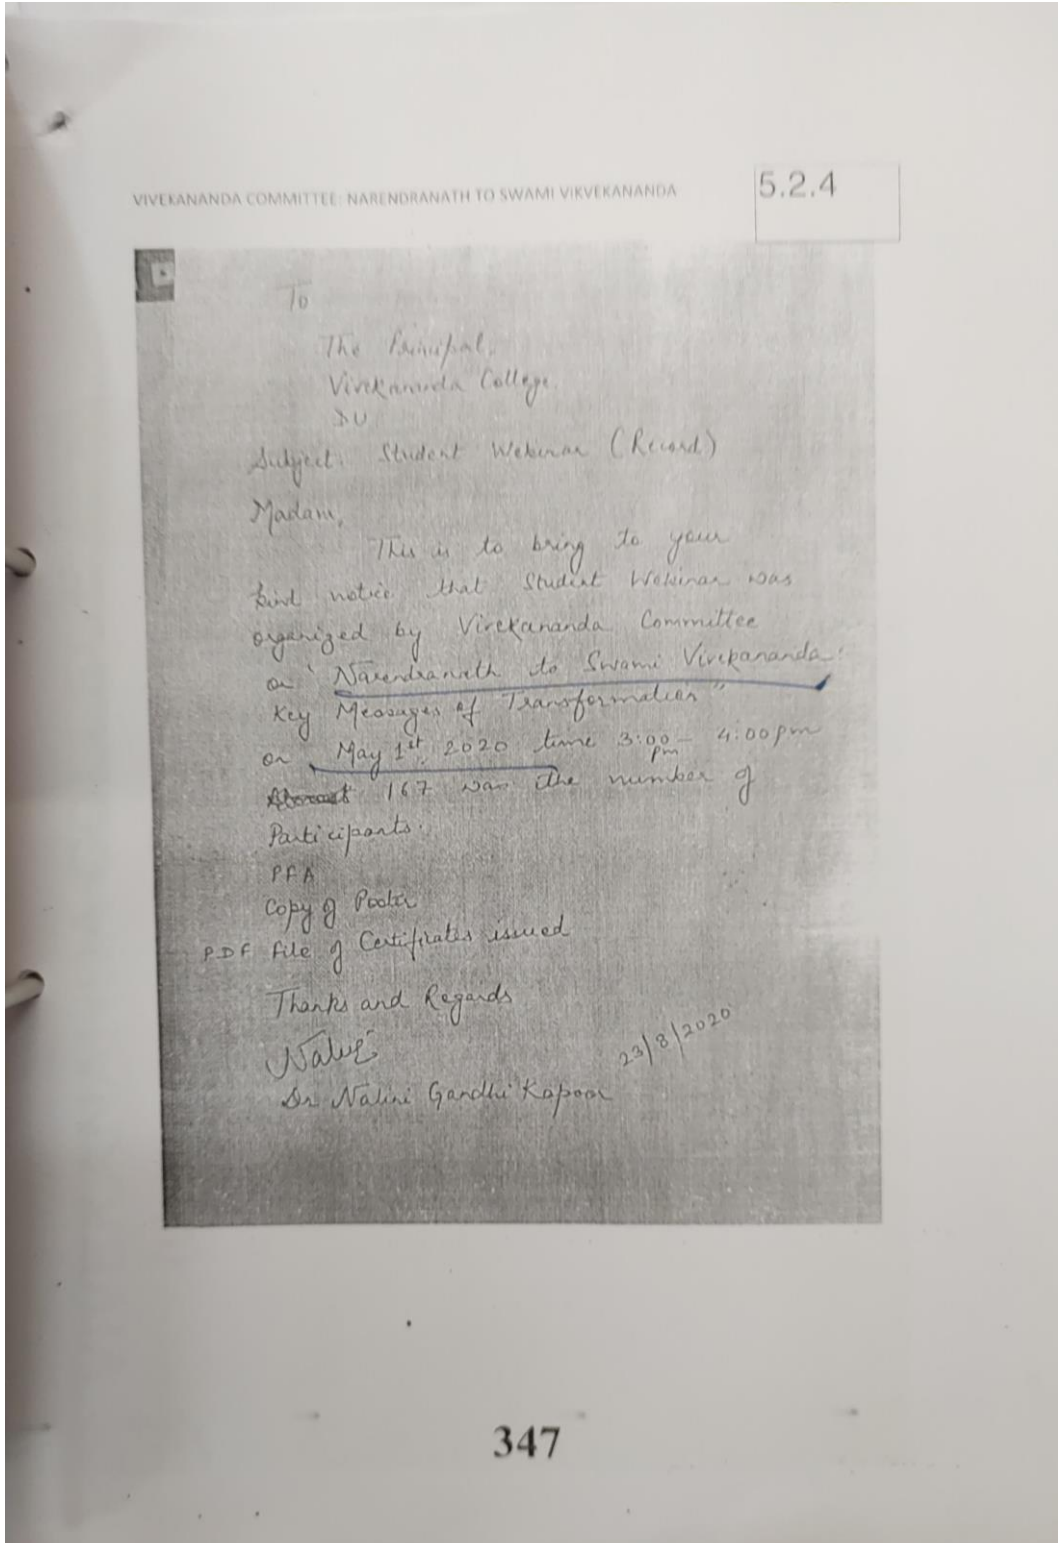 VIVEKANANDA COMMITTEE: NARENDRANATH TO SWAMI VIKVEKANANDA
5.2.4
To
The Principal,
Vivekananda College.
DU
Subject: Student Webinar (Record)
Madam,
This is to bring to your
kind notice that Student Webinar was
organized by Vivekananda Committee
on "Narendranath to Swami Vivekananda:
Key Messages of Transformation"
on May 1st, 2020 time 3:00 pm – 4:00 pm
167 was the number of
Participants.
PFA
Copy of Poster
PDF file of Certificates issued
Thanks and Regards
Nalini
23/8/2020
Dr Nalini Gandhi Kapoor
347